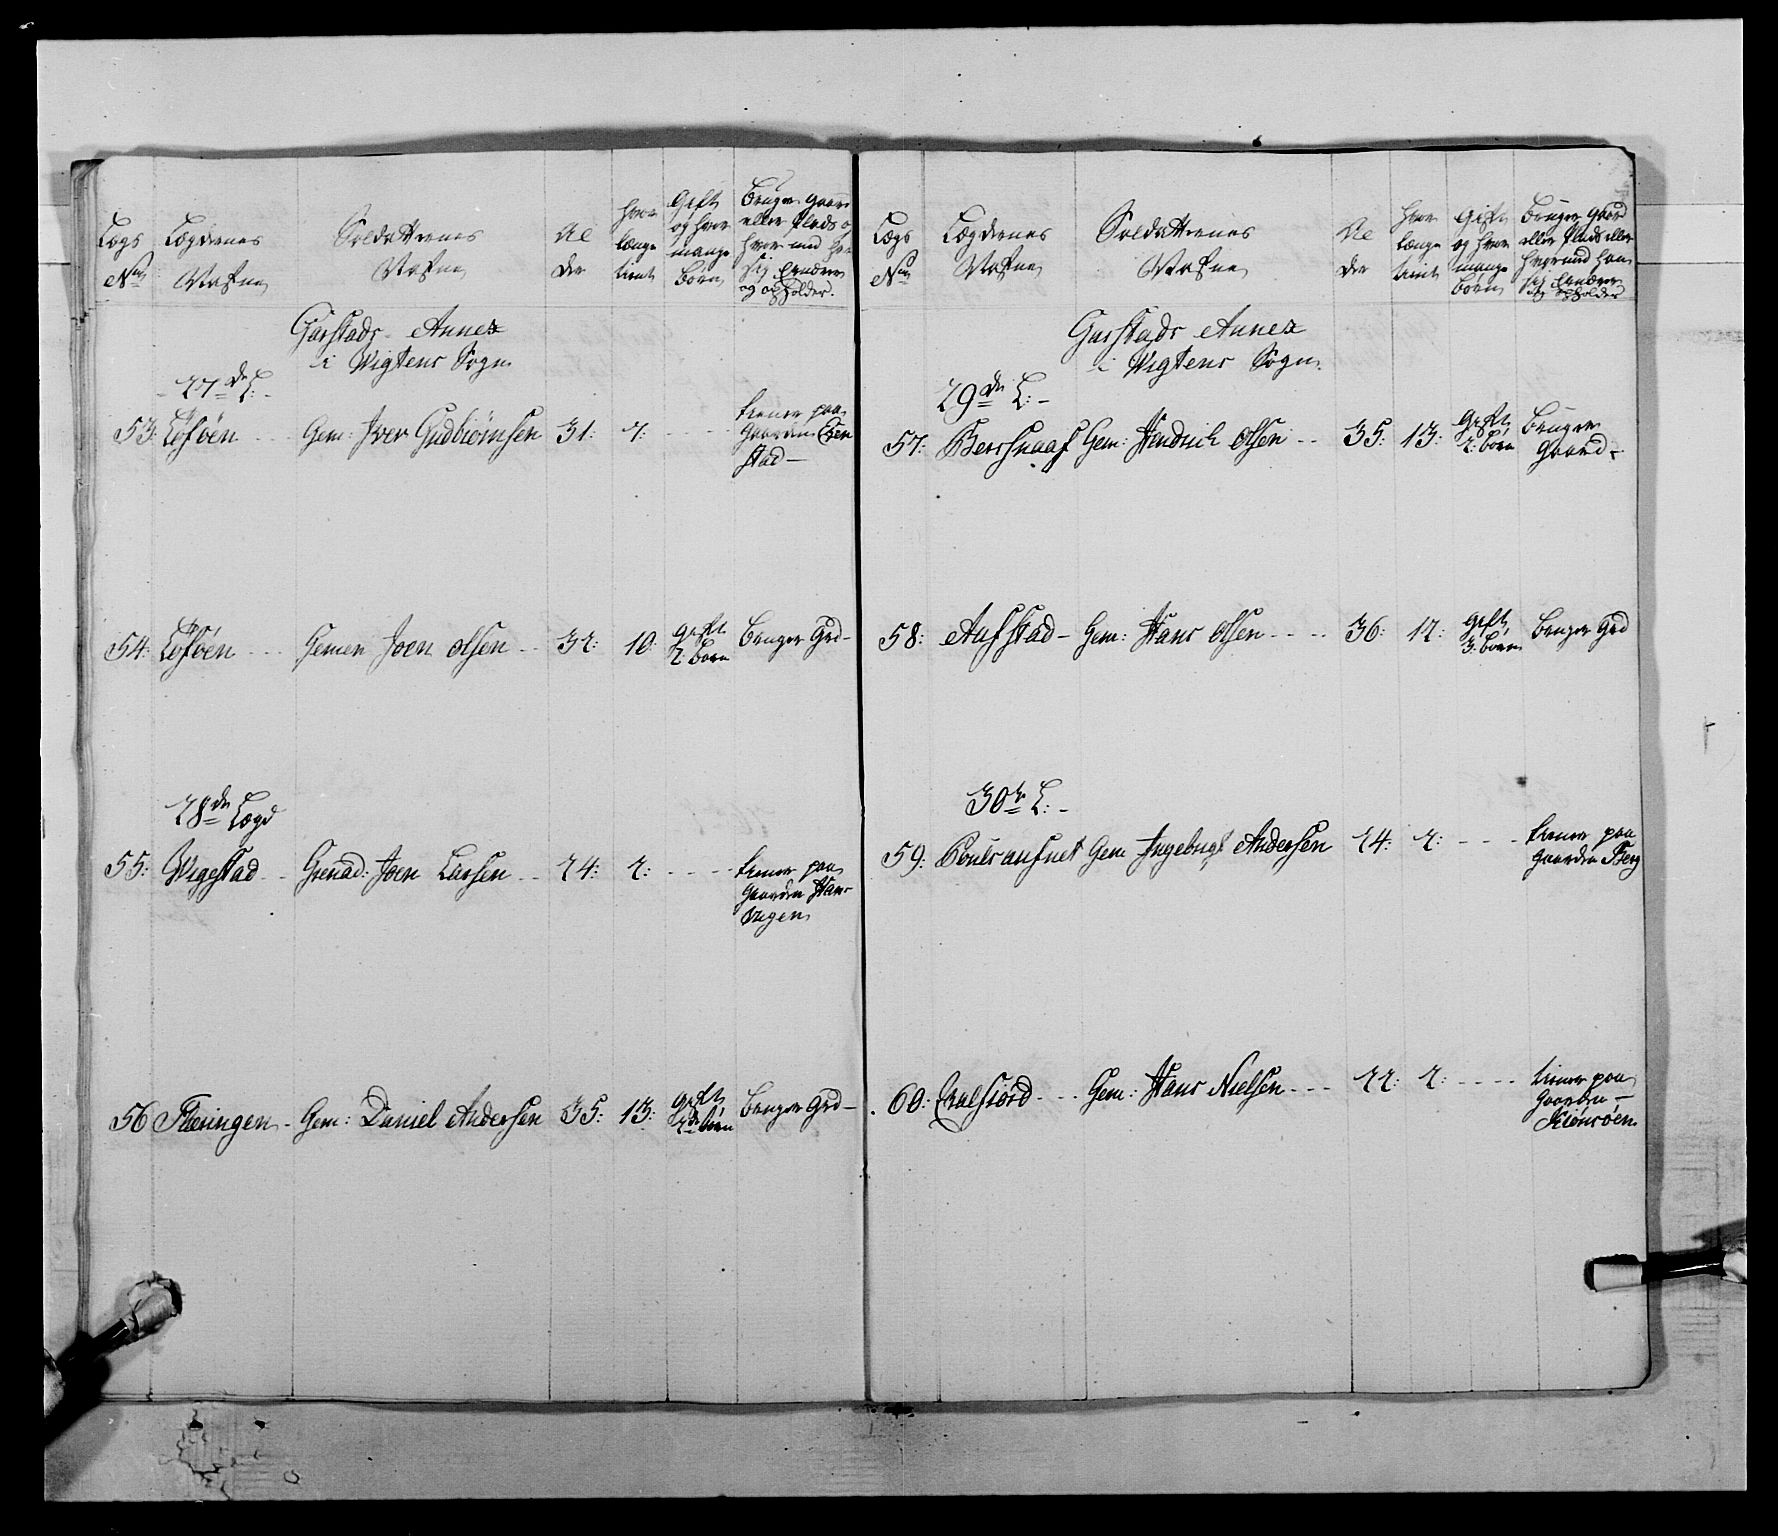 Lægs No
Lægdernes Nafne
Soldatternes Nafne
Al der
hvor længe tient
Gift og hvor mange børn
Bruger Gaard eller Plads og hvormed han sig Ernærer og opholder.
Garstads Annex
i Vigtens Sogn
27de L:
53: Löföen - - - Gem: Iver Gudbiörnsen 31: 7: - - - tiener paa
Gaarden Even
stad -
54: Löföen - - - Gemen Joen Olsen - - 32: 10: Gift, 2: børn Bruger Grd -
28de Lægd
55: Wigestad - - Grenad: Joen Larsen - - 24: 2: - - - - tiener paa
Gaarden
56 Flæringen - Gem: Daniel Andersen 35: 13: Gift, 2de børn Bruger Grd -
Lægs No
Lægdernes Nafne
Soldatternes Nafne
Al der
hvor længe tient
Gift og hvor mange børn
Bruger Gaard eller Plads eller hvormed han sig Ernærer og opholder
Garstads Annex
i Vigtens Sogn
29de L: -
57: Gem: Hendrich Olsen - - 35: 13: Gift, 2: børn Bruger
Gaard -
58: Aufstad - Gem: Hans Olsen - - - - 36: 12: Gift, 3: børn Bruger Grd
30te L: -
59: Gem Ingebrigt Andersen 24: 2: - - - tiener paa
Gaarden Berg
60: - - - Gem: Hans Nielsen - - - 22: 2: - - - - tiener paa
Gaarden -